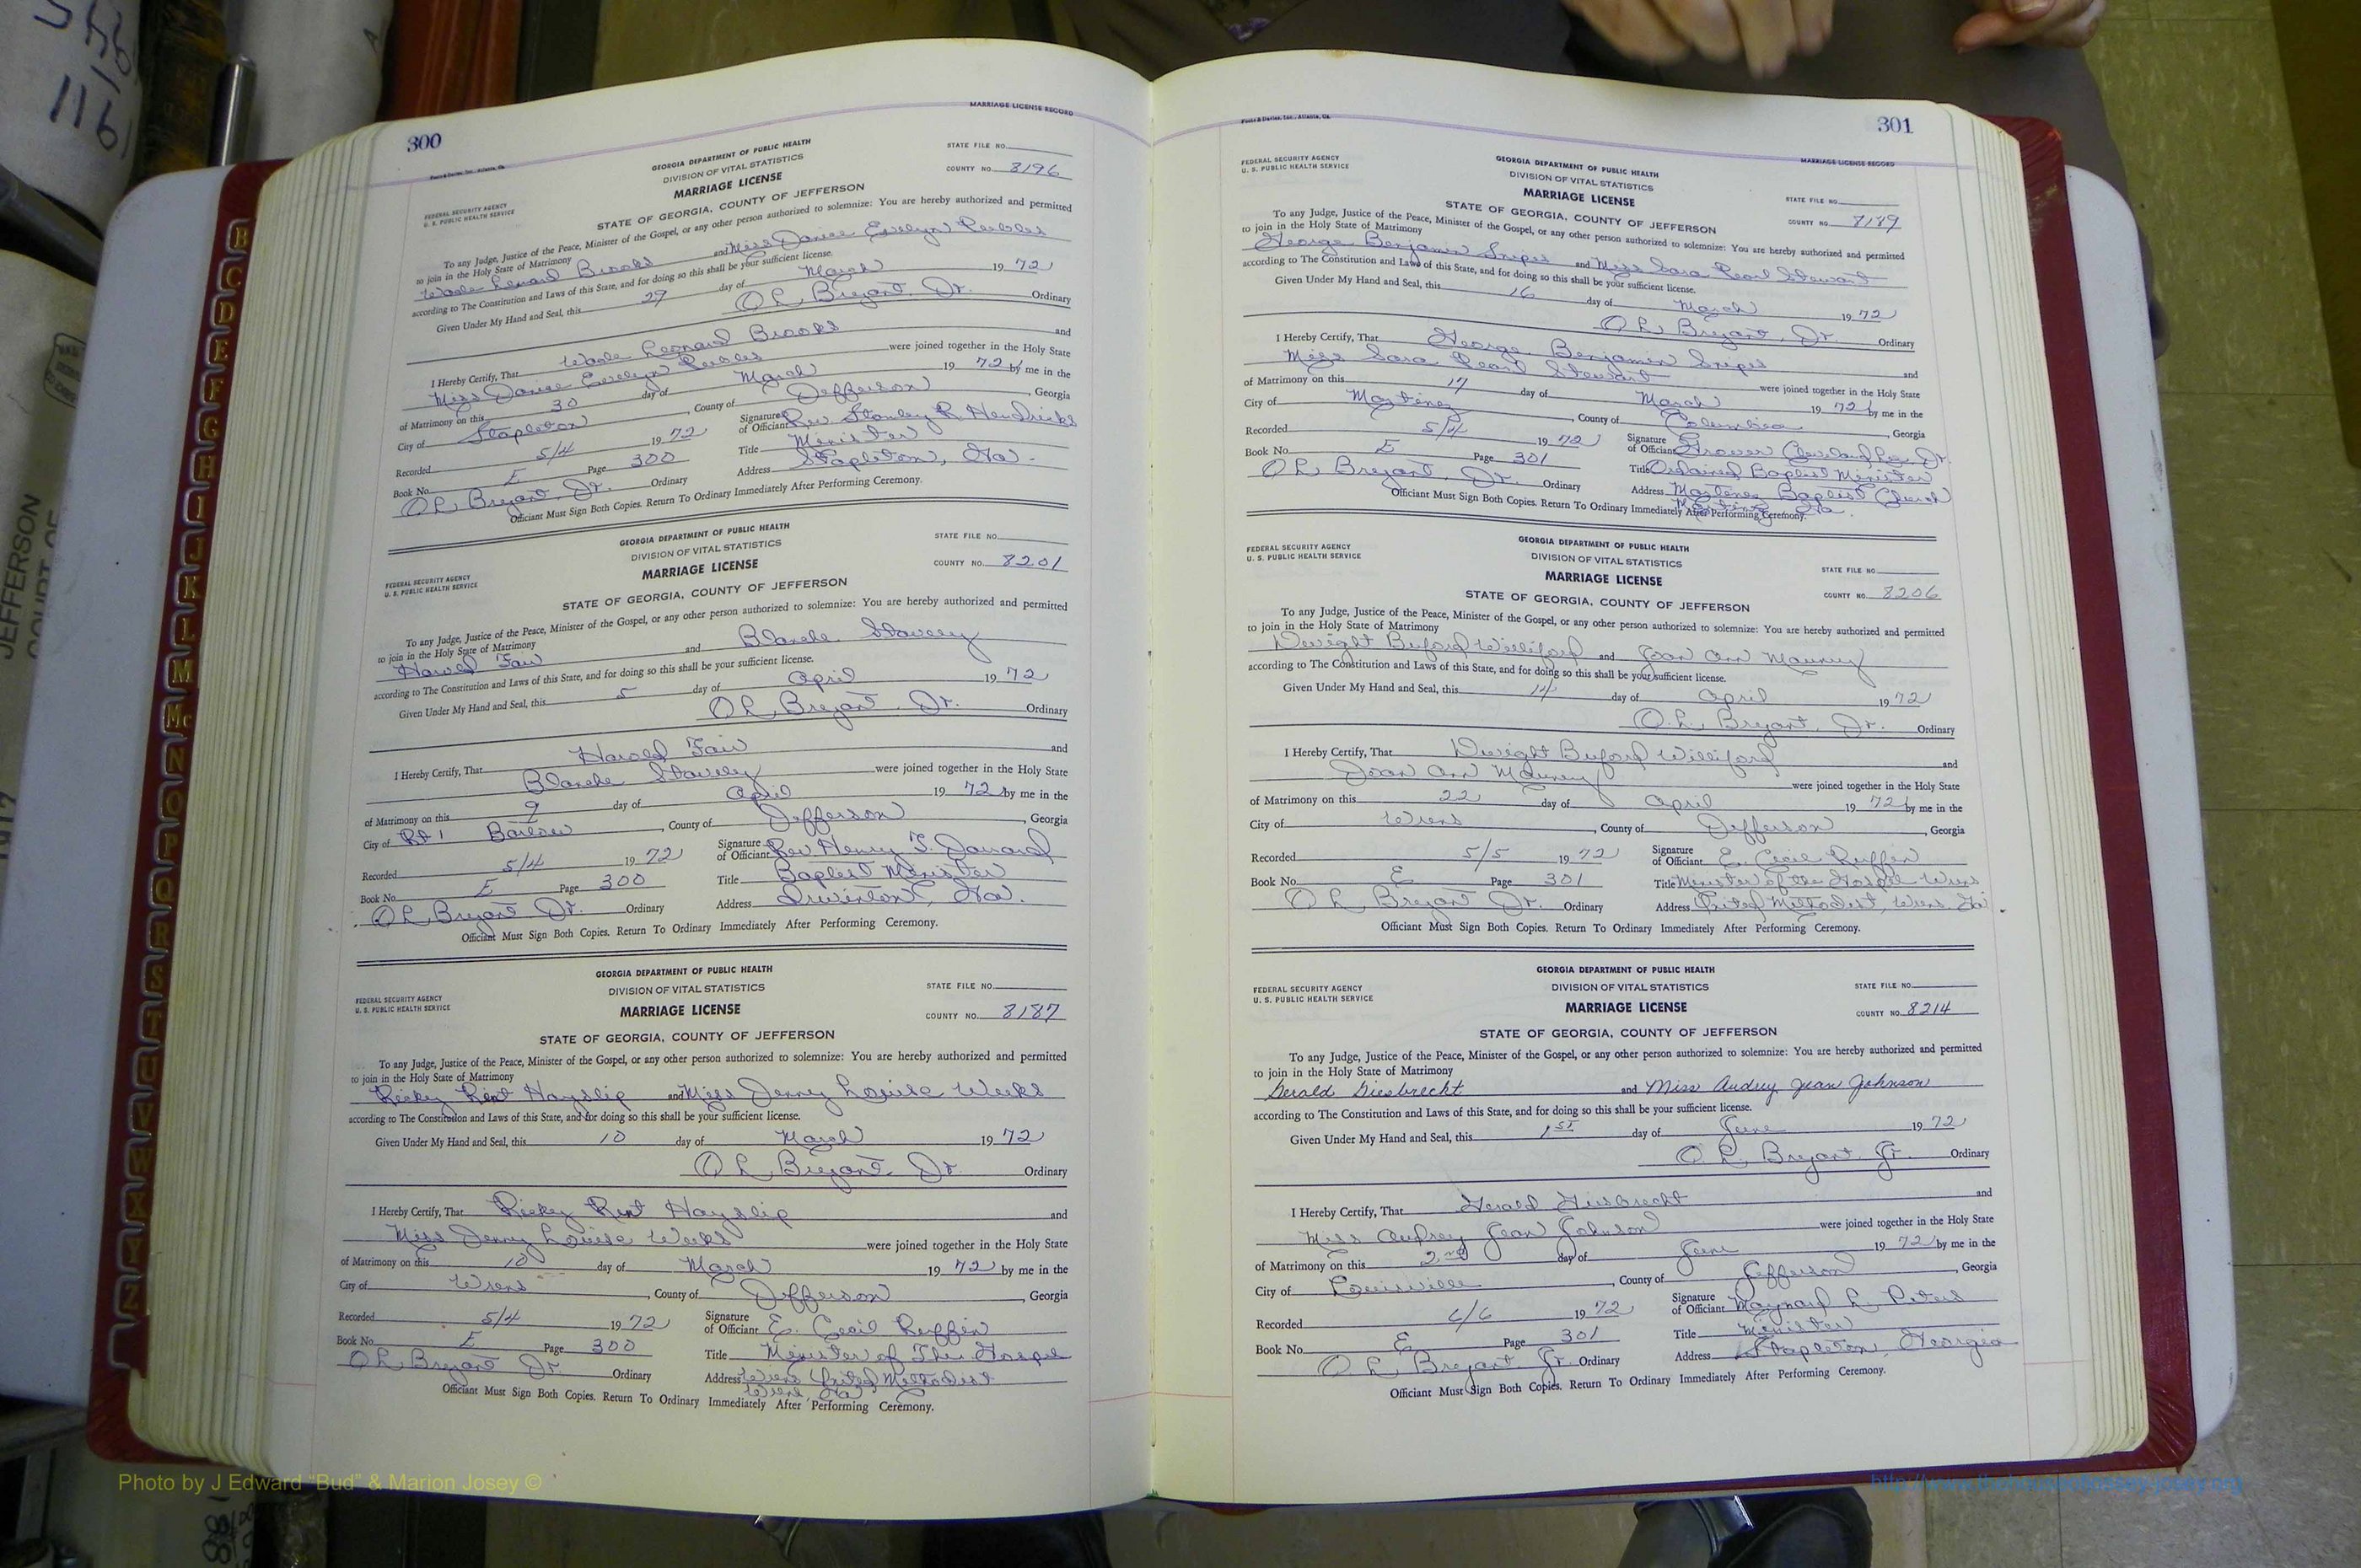 300
MARRIAGE LICENSE RECORD
GEORGIA DEPARTMENT OF PUBLIC HEALTH
DIVISION OF VITAL STATISTICS
MARRIAGE LICENSE
STATE FILE NO.
COUNTY NO. 8196
FEDERAL SECURITY AGENCY
U. S. PUBLIC HEALTH SERVICE
STATE OF GEORGIA, COUNTY OF JEFFERSON
To any Judge, Justice of the Peace, Minister of the Gospel, or any other person authorized to solemnize: You are hereby authorized and permitted
to join in the Holy State of Matrimony
Wade Leonard Brooks and Miss Janice Evelyn Peebles
according to The Constitution and Laws of this State, and for doing so this shall be your sufficient license.
Given Under My Hand and Seal, this 29 day of March 19 72
O L Bryant, Jr. Ordinary
I Hereby Certify, That Wade Leonard Brooks and
Miss Janice Evelyn Peebles were joined together in the Holy State
of Matrimony on this 30 day of March 19 72 by me in the
City of Stapleton, County of Jefferson, Georgia
Recorded 5/4 19 72 Signature of Officiant Rev Stanley R. Hendricks
Book No. E Page 300 Title Minister
O L Bryant, Jr. Ordinary Address Stapleton, Ga.
Officiant Must Sign Both Copies. Return To Ordinary Immediately After Performing Ceremony.
GEORGIA DEPARTMENT OF PUBLIC HEALTH
DIVISION OF VITAL STATISTICS
MARRIAGE LICENSE
STATE FILE NO.
COUNTY NO. 8201
FEDERAL SECURITY AGENCY
U. S. PUBLIC HEALTH SERVICE
STATE OF GEORGIA, COUNTY OF JEFFERSON
To any Judge, Justice of the Peace, Minister of the Gospel, or any other person authorized to solemnize: You are hereby authorized and permitted
to join in the Holy State of Matrimony
Harold Fair and Blanche
according to The Constitution and Laws of this State, and for doing so this shall be your sufficient license.
Given Under My Hand and Seal, this 5 day of April 19 72
O L Bryant, Jr. Ordinary
I Hereby Certify, That Harold Fair and
Blanche were joined together in the Holy State
of Matrimony on this 9 day of April 19 72 by me in the
City of Rt 1 Bartow, County of Jefferson, Georgia
Recorded 5/4 19 72 Signature of Officiant Rev. Henry T.
Book No. E Page 300 Title Baptist Minister
O L Bryant Jr. Ordinary Address Irwinton, Ga.
Officiant Must Sign Both Copies. Return To Ordinary Immediately After Performing Ceremony.
GEORGIA DEPARTMENT OF PUBLIC HEALTH
DIVISION OF VITAL STATISTICS
MARRIAGE LICENSE
STATE FILE NO.
COUNTY NO. 8187
FEDERAL SECURITY AGENCY
U. S. PUBLIC HEALTH SERVICE
STATE OF GEORGIA, COUNTY OF JEFFERSON
To any Judge, Justice of the Peace, Minister of the Gospel, or any other person authorized to solemnize: You are hereby authorized and permitted
to join in the Holy State of Matrimony
Ricky Kent Hayslip and Miss Jenny Louise Weeks
according to The Constitution and Laws of this State, and for doing so this shall be your sufficient license.
Given Under My Hand and Seal, this 10 day of March 19 72
O L Bryant, Jr Ordinary
I Hereby Certify, That Ricky Kent Hayslip and
Miss Jenny Louise Weeks were joined together in the Holy State
of Matrimony on this 10 day of March 19 72 by me in the
City of Wrens, County of Jefferson, Georgia
Recorded 5/4 19 72 Signature of Officiant E. Cecil Ruffin
Book No. E Page 300 Title Minister of The Gospel
O L Bryant Jr. Ordinary Address Wrens United Methodist
Wrens, Ga
Officiant Must Sign Both Copies. Return To Ordinary Immediately After Performing Ceremony.
Foote & Davies, Inc., Atlanta, Ga.
301
MARRIAGE LICENSE RECORD
FEDERAL SECURITY AGENCY
U. S. PUBLIC HEALTH SERVICE
GEORGIA DEPARTMENT OF PUBLIC HEALTH
DIVISION OF VITAL STATISTICS
MARRIAGE LICENSE
STATE FILE NO.
COUNTY NO. 8189
STATE OF GEORGIA, COUNTY OF JEFFERSON
To any Judge, Justice of the Peace, Minister of the Gospel, or any other person authorized to solemnize: You are hereby authorized and permitted
to join in the Holy State of Matrimony
George Benjamin Snipes and Miss Sara Pearl Stewart
according to The Constitution and Laws of this State, and for doing so this shall be your sufficient license.
Given Under My Hand and Seal, this 16 day of March 19 72
O L Bryant, Jr. Ordinary
I Hereby Certify, That George Benjamin Snipes and
Miss Sara Pearl Stewart were joined together in the Holy State
of Matrimony on this 17 day of March 19 72 by me in the
City of Martinez, County of Columbia, Georgia
Recorded 5/4 19 72 Signature of Officiant Grover Cleveland Lee Jr.
Book No. E Page 301 Title Ordained Baptist Minister
O L Bryant, Jr. Ordinary Address Martinez Baptist Church
Martinez, Ga.
Officiant Must Sign Both Copies. Return To Ordinary Immediately After Performing Ceremony.
GEORGIA DEPARTMENT OF PUBLIC HEALTH
DIVISION OF VITAL STATISTICS
MARRIAGE LICENSE
STATE FILE NO.
COUNTY NO. 8206
FEDERAL SECURITY AGENCY
U. S. PUBLIC HEALTH SERVICE
STATE OF GEORGIA, COUNTY OF JEFFERSON
To any Judge, Justice of the Peace, Minister of the Gospel, or any other person authorized to solemnize: You are hereby authorized and permitted
to join in the Holy State of Matrimony
Dwight Buford Williford and Joan Ann Mauney
according to The Constitution and Laws of this State, and for doing so this shall be your sufficient license.
Given Under My Hand and Seal, this 14 day of April 19 72
O. L. Bryant, Jr. Ordinary
I Hereby Certify, That Dwight Buford Williford and
Joan Ann Mauney were joined together in the Holy State
of Matrimony on this 22 day of April 19 72 by me in the
City of Wrens, County of Jefferson, Georgia
Recorded 5/5 19 72 Signature of Officiant E. Cecil Ruffin
Book No. E Page 301 Title Minister of the Gospel Wrens
O L Bryant Jr. Ordinary Address United Methodist, Wrens, Ga
Officiant Must Sign Both Copies. Return To Ordinary Immediately After Performing Ceremony.
GEORGIA DEPARTMENT OF PUBLIC HEALTH
DIVISION OF VITAL STATISTICS
MARRIAGE LICENSE
STATE FILE NO.
COUNTY NO. 8214
FEDERAL SECURITY AGENCY
U. S. PUBLIC HEALTH SERVICE
STATE OF GEORGIA, COUNTY OF JEFFERSON
To any Judge, Justice of the Peace, Minister of the Gospel, or any other person authorized to solemnize: You are hereby authorized and permitted
to join in the Holy State of Matrimony
Gerald Giesbrecht and Miss Audrey Jean Johnson
according to The Constitution and Laws of this State, and for doing so this shall be your sufficient license.
Given Under My Hand and Seal, this 1st day of June 19 72
O. L. Bryant Jr. Ordinary
I Hereby Certify, That Gerald Giesbrecht and
Miss Audrey Jean Johnson were joined together in the Holy State
of Matrimony on this 2nd day of June 19 72 by me in the
City of Louisville, County of Jefferson, Georgia
Recorded 6/6 19 72 Signature of Officiant Maynard L. Peters
Book No. E Page 301 Title Minister
O L Bryant Jr. Ordinary Address Stapleton, Georgia
Officiant Must Sign Both Copies. Return To Ordinary Immediately After Performing Ceremony.
B
C
D
E
F
G
H
I
J
K
L
M
Mc
N
O
P
Q
R
S
T
U
V
W
X
Y
Z
JEFFERSON
Photo by J Edward “Bud” & Marion Josey ©